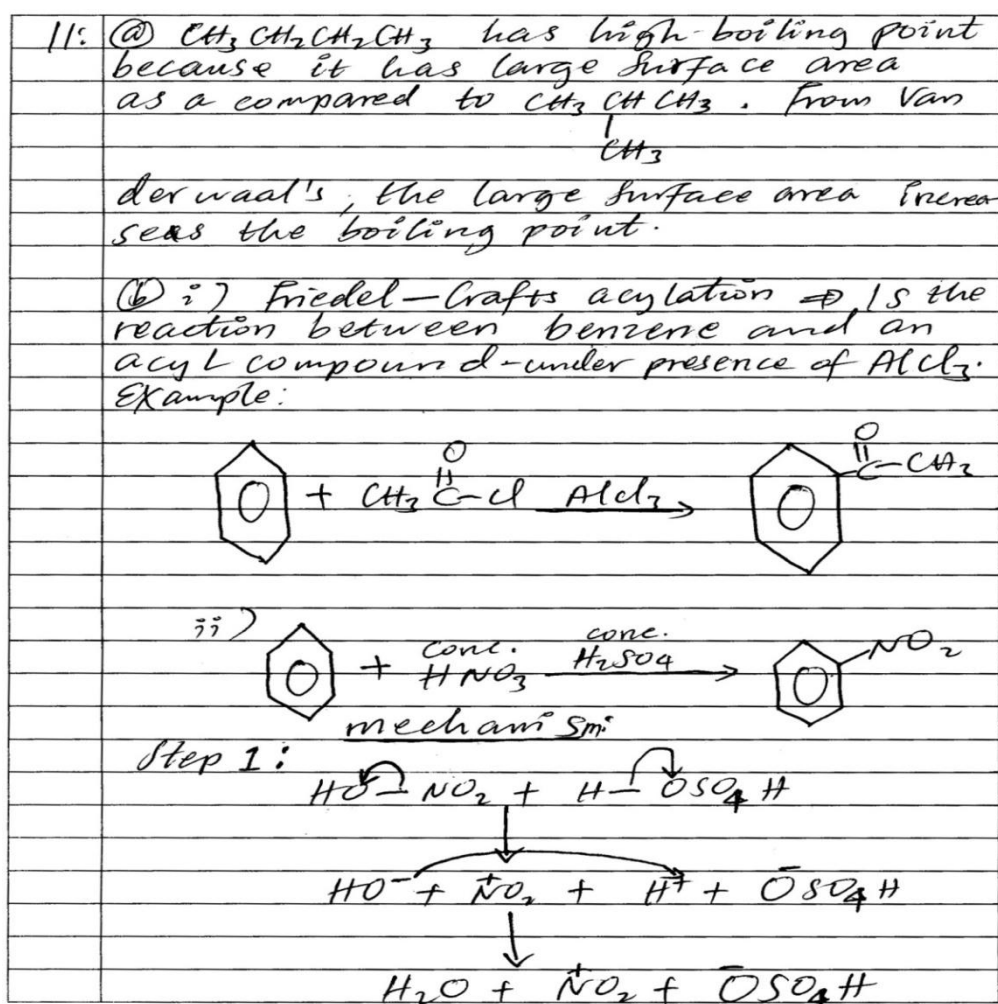 11: (a) CH3 CH2CH2CH3 has high-boiling point
because it has large surface area
as a compared to CH3 CH CH3 . From Van
CH3
der waal's, the large surface area increa
seas the boiling point.
(b) i) Friedel-Crafts acylation ⇒ Is the
reaction between benzene and an
acyl compound-under presence of AlCl3.
Example:
O O
+ CH3 C-Cl AlCl3 → C-CH3
ii) + conc. HNO3 conc. H2SO4 → NO2
mechanism:
Step 1:
HO-NO2 + H-OSO4H
HO⁻ + N⁺O2 + H⁺ + O⁻SO4H
H2O + N⁺O2 + O⁻SO4H